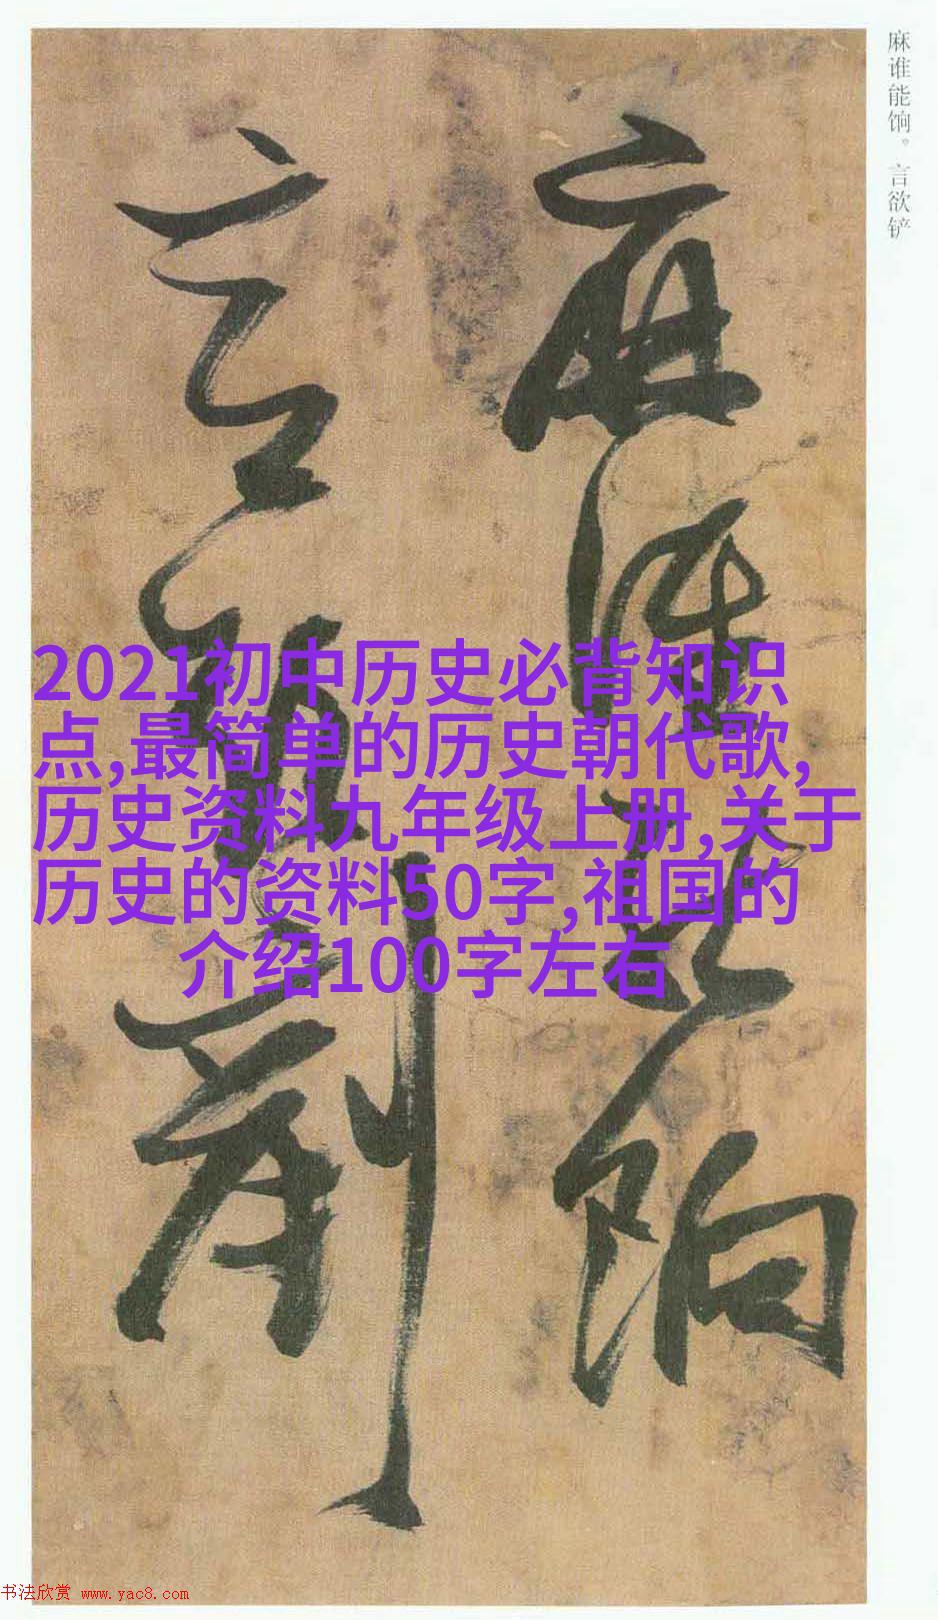 麻谁能饷。言欲铲
麻谁能饷
言欲剷
2021初中历史必背知识
点,最简单的历史朝代歌,
历史资料九年级上册,关于
历史的资料50字,祖国的
介绍100字左右
书法欣赏 www.yac8.com